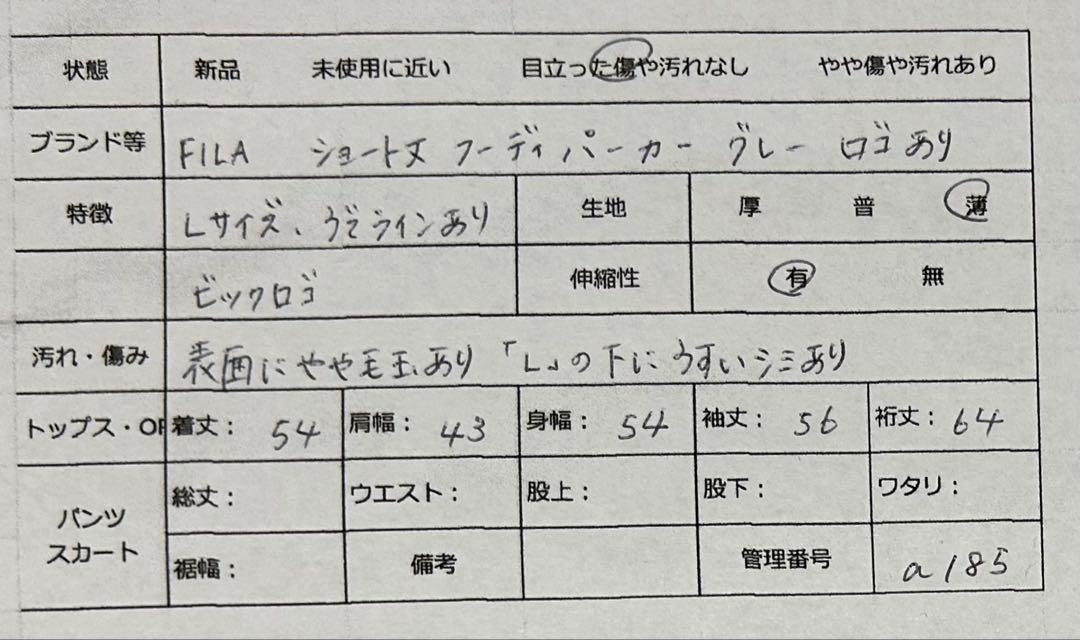 状態 新品 未使用に近い 目立った傷や汚れなし やや傷や汚れあり
ブランド等 FILA ショート丈 フーディ パーカー グレー ロゴあり
特徴 Lサイズ、うでラインあり 生地 厚 普 薄
ビックロゴ 伸縮性 有 無
汚れ・傷み 表面にやや毛玉あり 「L」の下にうすいシミあり
トップス・OP 着丈： 54 肩幅： 43 身幅： 54 袖丈： 56 裄丈： 64
パンツ スカート 総丈： ウエスト： 股上： 股下： ワタリ：
裾幅： 備考 管理番号 a185